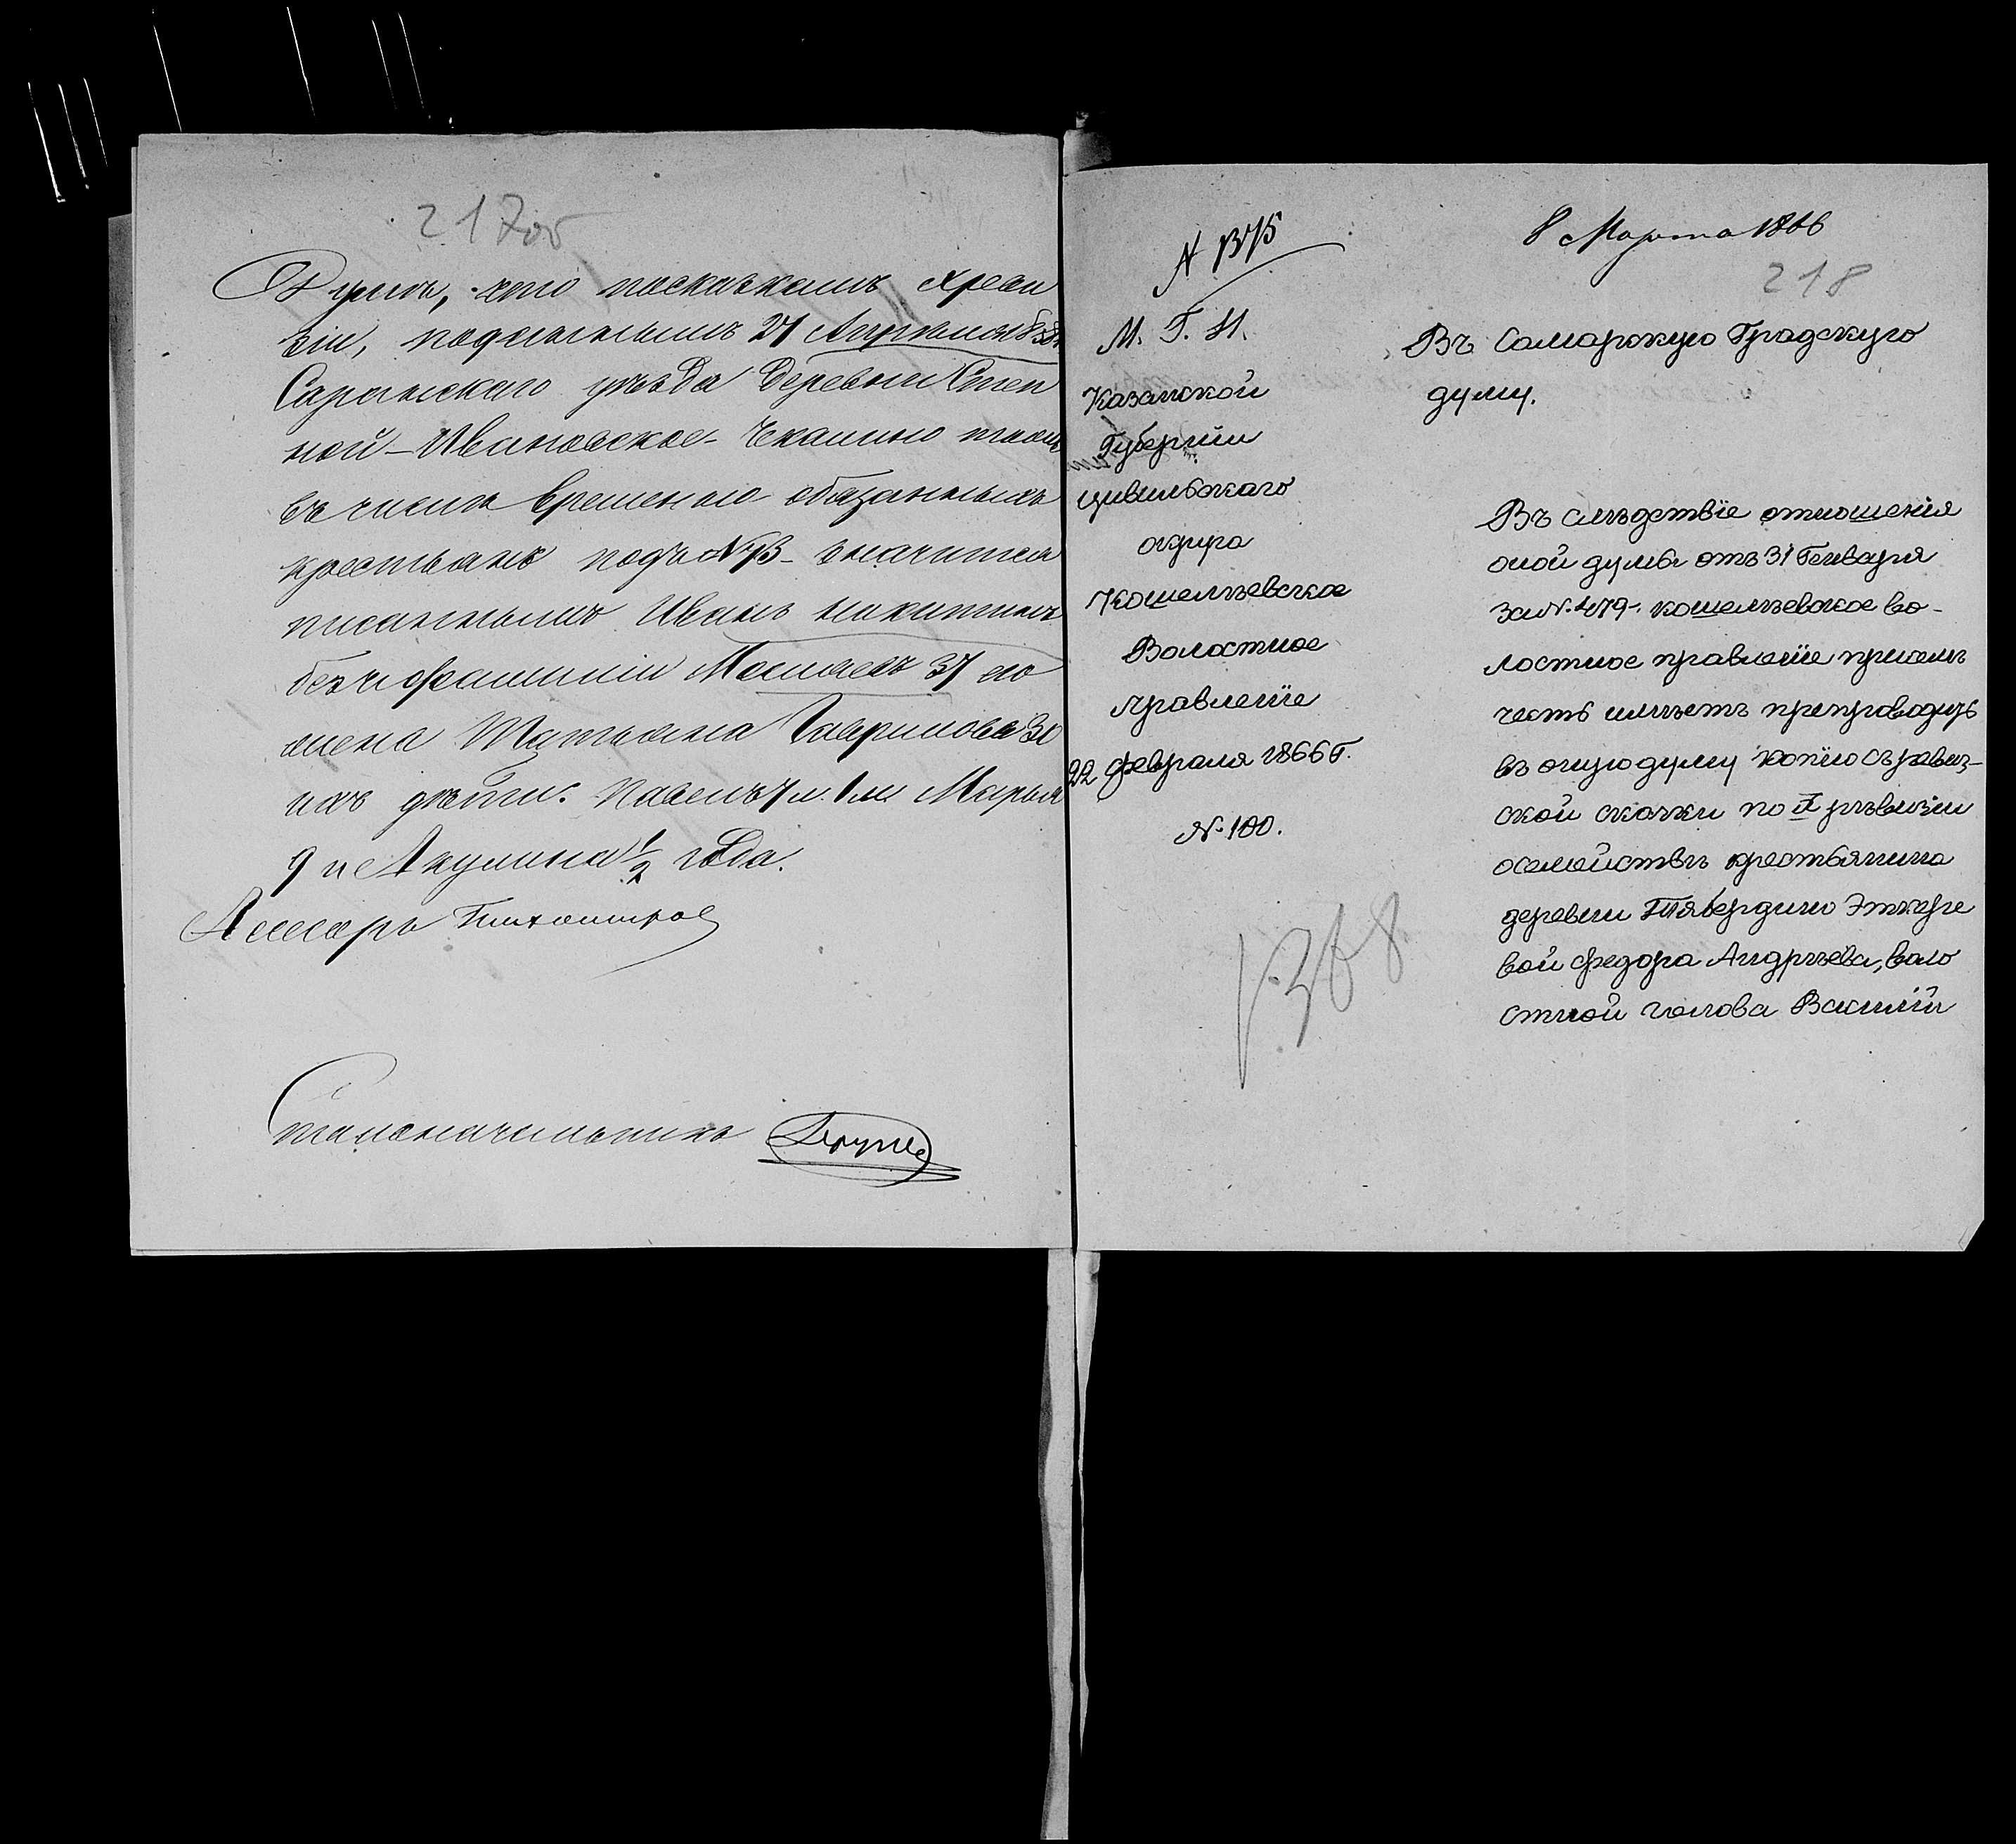 217об
Думы, что по сказкамъ X реви
зіи, поданнымъ 27 Апреля 1858 г.
Саранскаго уѣзда деревни Степ
ной-Ивановское-
въ числѣ временно обязанныхъ
крестьянъ подъ № значится
писаннымъ Иванъ Никитинъ
37 его
жена Татьяна Гаврилова 30
ихъ дѣти: Павелъ 7 л. Марья
9 и Акулина 1/2 года.
Ассесоръ
Столоначальникъ
8 Марта 1866
218
М. Г. И.
Казанской
Губерніи
Цивильскаго
округа
Кошелѣевское
Волостное
правленіе
22 февраля 1866 г.
№ 100.
1368
Въ Самарскую Градскую
думу.
Въ слѣдствіе отношенія
оной думы отъ 31 Генваря
за № 479. кошелѣевское во-
лостное правленіе присемъ
честь имѣетъ препроводить
въ оную думу копію съ ревиз-
ской скозки по X рѣвизіи
осемействѣ крестьянина
деревни Тябердино Эткере
вой федора Андрѣева, воло
стной голова Василій